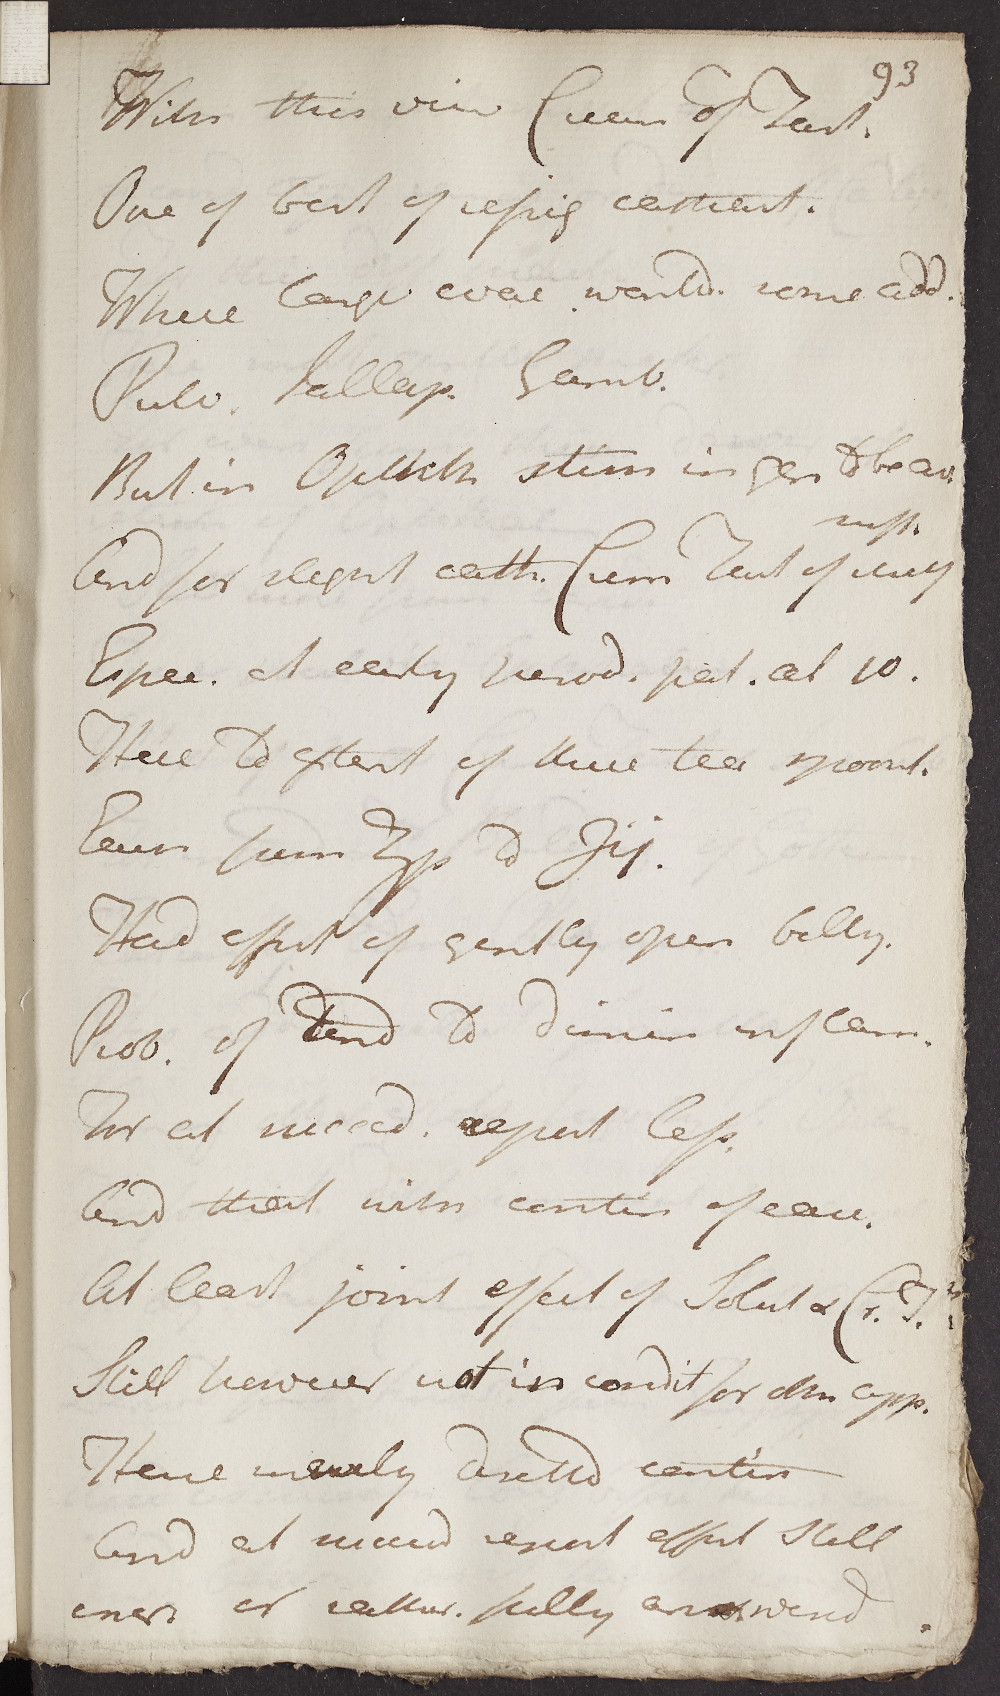 93
With this view Cream of Tart.
One of best of refrig cathart.
Where large evac. wanted. some add.
Pulv. Jallap. Gamb.
But in Ophth stim in gen to be av
And for slight cath. Crem Tart of itself
Espec. at early period. pat. at 10.
Here to extent of three tea spoonf.
Even from ʒfs to ʒij.
Had effect of gently open belly.
Prob. of tend to dimin inflam.
For at succeed. report less.
And that with contin of eau.
At least joint effect of Solut & Cr. T.
Still however not in condit for other app.
Hence merely directed contin
And at succeed report effect still
more or rather. fully answered.